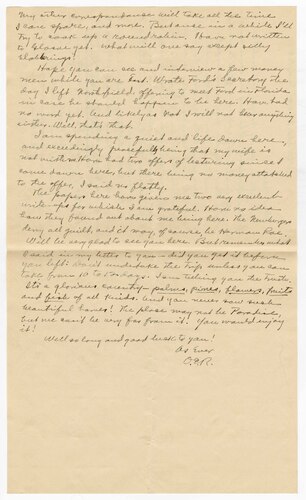 My other correspondence will take all the time
I can spare, and more. Because in a while I'll
try to cook up a
to Glasse yet. What will one say except silly
Hope you can see and interview a few money
men while you are East. Wrote Ford's Secretary the
day I left Northfield offering to meet Ford in Florida
in case he should happen to be here. Have had
no word yet. And likely as not I will not hear anything
either. Well, that's that.
I am spending a quiet and life down here,
and exceedingly peaceful being that my wife is
not with me. Have had two offers of lecturing since I
came down here, but there being no money attached
to the offer, I said no flatly.
The papers here have given me two very excellent
write-ups for which I am grateful. Have no idea
how they found out about me being here. The
deny all guilt, and it may, of course be Herman Roe.
Will be very glad to see you here. But remember what
I said in my letter to you - did you get it before
you left. Don't undertake the trip unless you can
take from 10 to 15 days. I am telling you the truth,
It's a glorious country - palms, pines, flowers, fruits
and fish of all kinds. And you never saw such
beautiful homes! The place may not be Paradise,
but me can't be very far from it! You would enjoy
it!
Well so long and good luck to you!
As Ever
O.E.R.